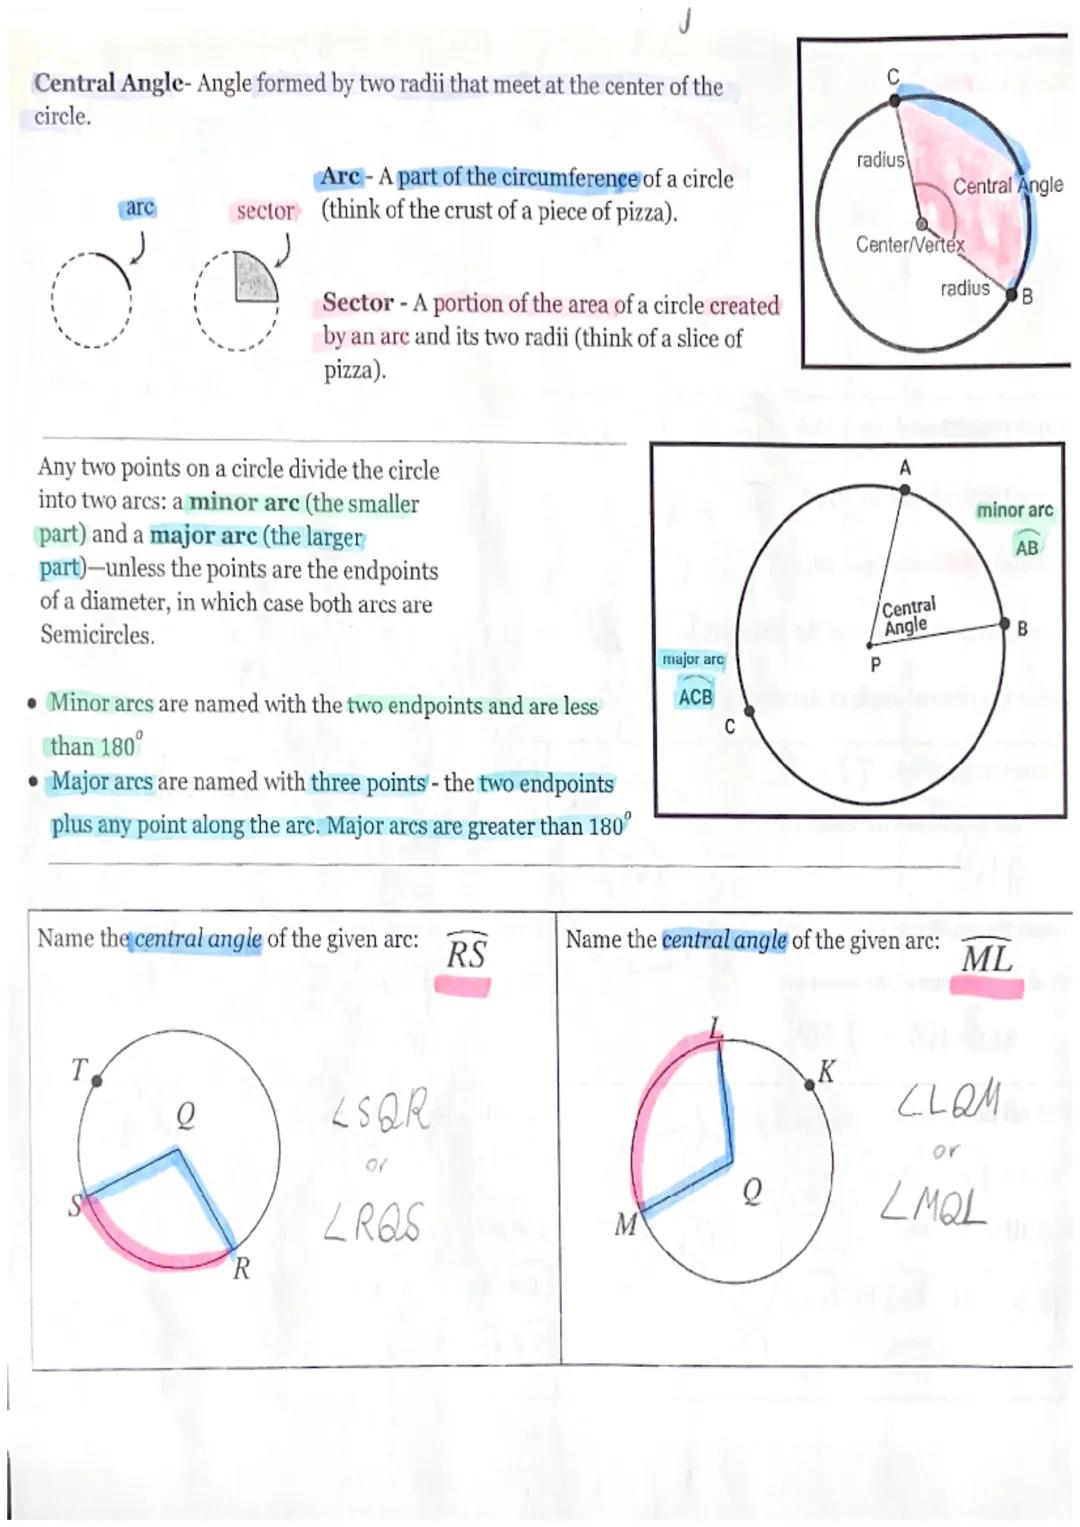 Central Angle- Angle formed by two radii that meet at the center of the
circle.
Arc - A part of the circumference of a circle
(think of the crust of a piece of pizza).
arc
sector
Sector - A portion of the area of a circle created
by an arc and its two radii (think of a slice of
pizza).
C
radius
Central Angle
Center/Vertex
radius
B
Any two points on a circle divide the circle
into two arcs: a minor arc (the smaller
part) and a major arc (the larger
part)—unless the points are the endpoints
of a diameter, in which case both arcs are
Semicircles.
• Minor arcs are named with the two endpoints and are less
than 180°
• Major arcs are named with three points - the two endpoints
plus any point along the arc. Major arcs are greater than 180°
A
minor arc
AB
Central
Angle
B
P
major arc
ACB
C
Name the central angle of the given arc: RS
T
Q
S
R
∠SQR
or
∠RQS
Name the central angle of the given arc: ML
L
K
Q
M
∠LQM
or
∠MQL